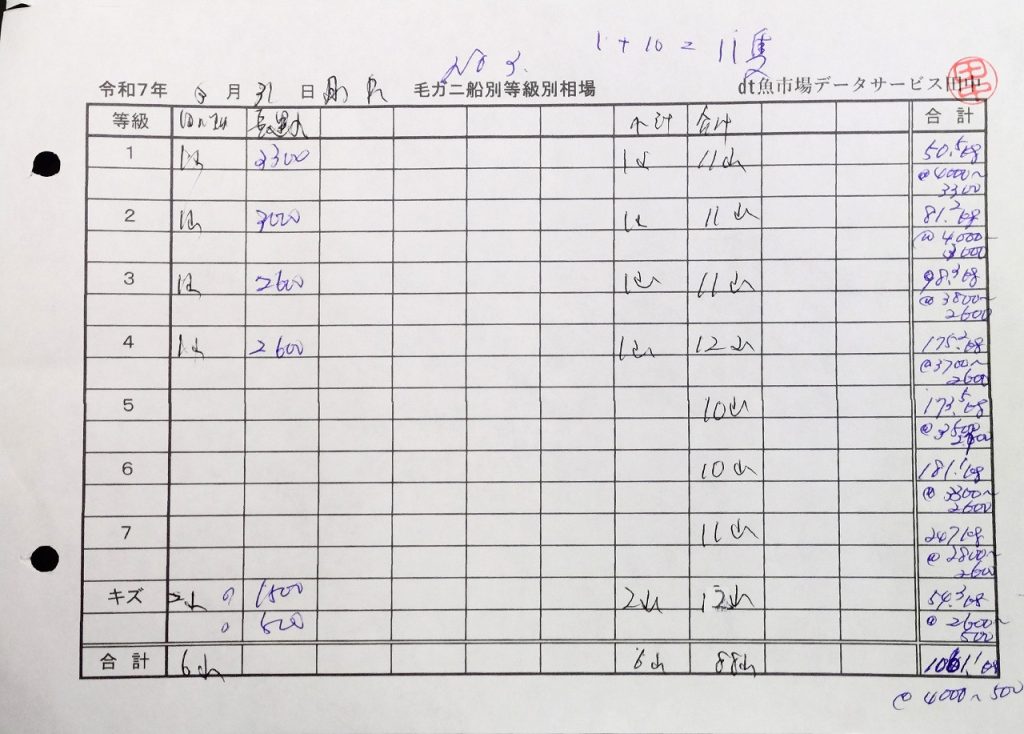 1 + 10 = 11隻
No 3.
令和7年 月 31 日 毛カニ船別等級別相場 dt魚市場データサービス田中
等級 小計 合計 合計
1 1山 3300 1山 11山 50.5kg
@4000~
3300
2 1山 3000 1山 11山 81.2kg
@4000~
3000
3 1山 2600 1山 11山 98.3kg
@3800~
2600
4 1山 2600 1山 12山 175.2kg
@3700~
2600
5 10山 173.5kg
@3500~
6 10山 181.1kg
@3300~
2600
7 11山 247kg
@2800~
2600
キズ 2山 1500 2山 12山 54.3kg
500 @2600~
500
合計 6山 6山 88山 1061.1kg
@4000~500